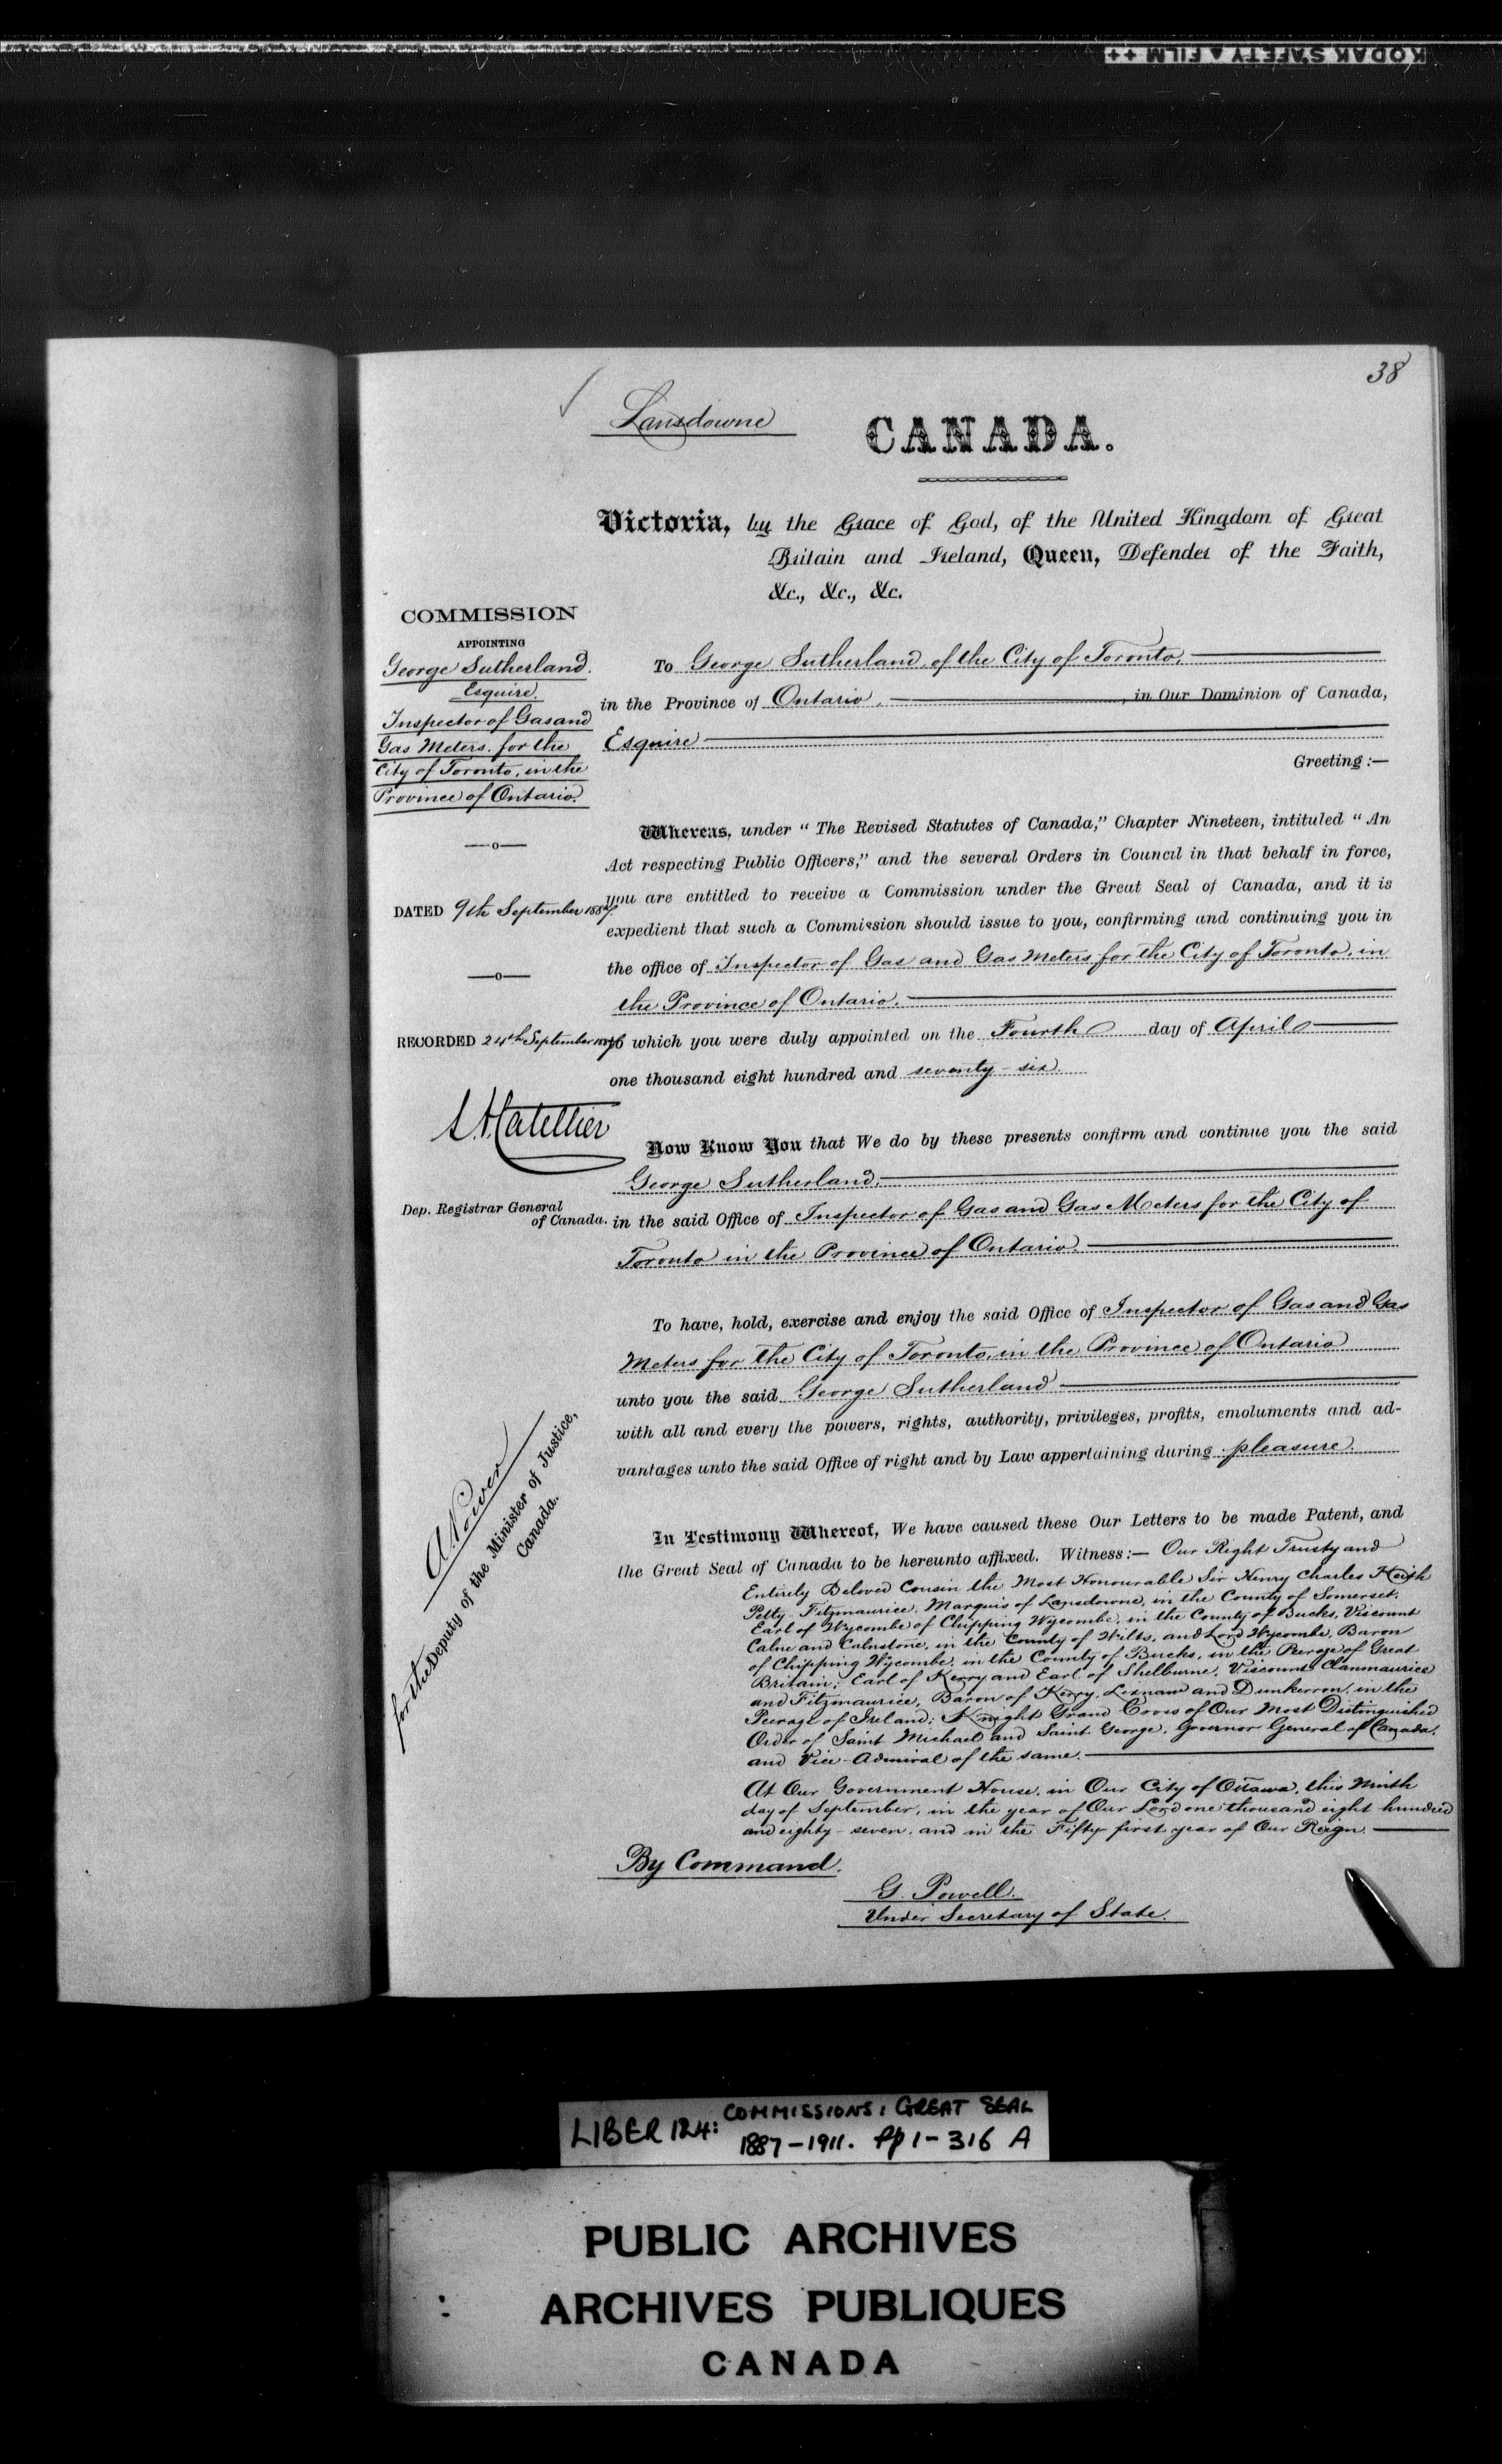 KODAK SAFETY ▲ FILM ++
38
Lansdowne
CANADA.
Victoria, by the Grace of God, of the United Kingdom of Great
Britain and Ireland, Queen, Defender of the Faith,
&c., &c., &c.
COMMISSION
APPOINTING
George Sutherland.
Esquire.
Inspector of Gas and
Gas Meters. for the
City of Toronto, in the
Province of Ontario.
—o—
DATED 9th September 1887.
—o—
RECORDED 24th September 1887
Dep. Registrar General
of Canada.
A. Power
for the Deputy of the Minister of Justice,
Canada.
To George Sutherland, of the City of Toronto,
in the Province of Ontario, , in Our Dominion of Canada,
Esquire
Greeting :—
Whereas, under “ The Revised Statutes of Canada,” Chapter Nineteen, intituled “ An
Act respecting Public Officers,” and the several Orders in Council in that behalf in force,
you are entitled to receive a Commission under the Great Seal of Canada, and it is
expedient that such a Commission should issue to you, confirming and continuing you in
the office of Inspector of Gas and Gas Meters for the City of Toronto, in
the Province of Ontario.
to which you were duly appointed on the Fourth day of April
one thousand eight hundred and seventy-six.
Now Know You that We do by these presents confirm and continue you the said
George Sutherland,
in the said Office of Inspector of Gas and Gas Meters for the City of
Toronto in the Province of Ontario.
To have, hold, exercise and enjoy the said Office of Inspector of Gas and Gas
Meters for the City of Toronto, in the Province of Ontario
unto you the said George Sutherland
with all and every the powers, rights, authority, privileges, profits, emoluments and ad-
vantages unto the said Office of right and by Law appertaining during pleasure.
In Testimony Whereof, We have caused these Our Letters to be made Patent, and
the Great Seal of Canada to be hereunto affixed. Witness :— Our Right Trusty and
Entirely Beloved Cousin the Most Honourable Sir Henry Charles Keith
Petty Fitzmaurice, Marquis of Lansdowne, in the County of Somerset,
Earl of Wycombe of Chipping Wycombe, in the County of Bucks, Viscount
Calne and Calnstone, in the County of Wilts, and Lord Wycombe, Baron
of Chipping Wycombe, in the County of Bucks, in the Peerage of Great
Britain; Earl of Kerry and Earl of Shelburne, Viscount Clanmaurice
and Fitzmaurice, Baron of Kerry, Lixnaw and Dunkerron, in the
Peerage of Ireland; Knight Grand Cross of Our Most Distinguished
Order of Saint Michael and Saint George, Governor General of Canada,
and Vice-Admiral of the same.
At Our Government House, in Our City of Ottawa, this Ninth
day of September, in the year of Our Lord one thousand eight hundred
and eighty-seven, and in the Fifty first year of Our Reign.
By Command.
G. Powell.
Under Secretary of State.
LIBER 124: COMMISSIONS: GREAT SEAL
1887-1911. pp 1-316 A
PUBLIC ARCHIVES
ARCHIVES PUBLIQUES
CANADA